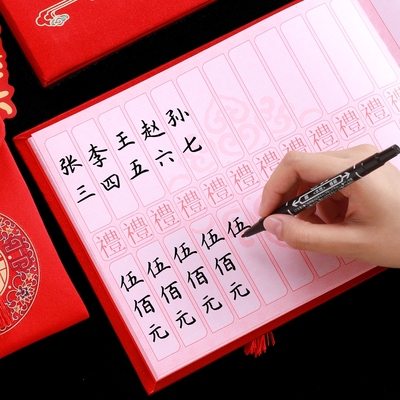 张三
李四
王五
赵六
孙七
禮 禮 禮 禮 禮 禮 禮 禮 禮 禮 禮 禮
伍佰元
伍佰元
伍佰元
伍佰元
伍